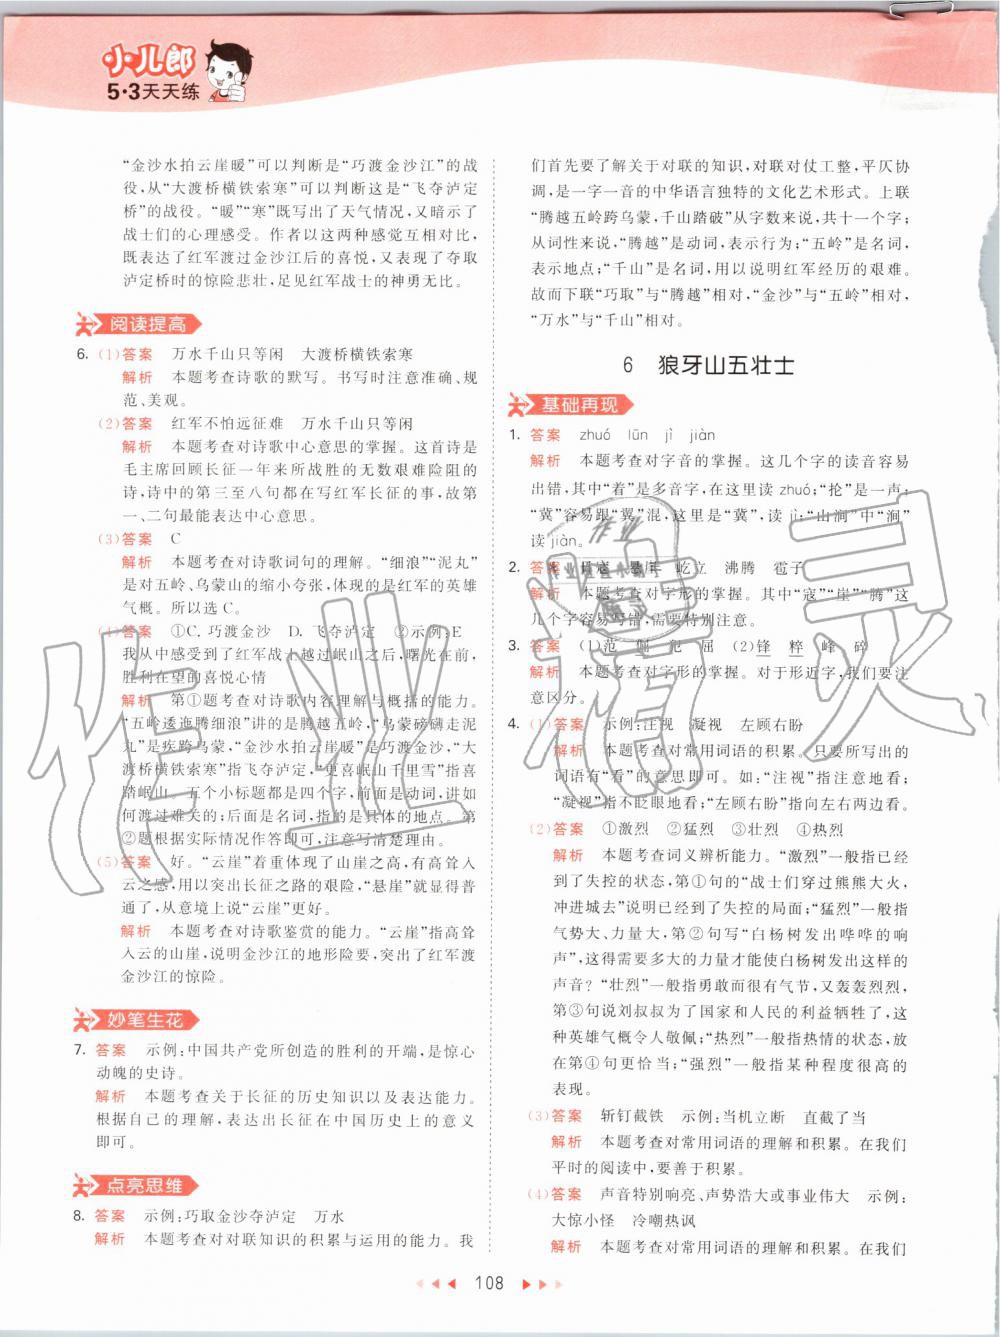 小儿郎
5·3天天练
“金沙水拍云崖暖”可以判断是“巧渡金沙江”的战
役,从“大渡桥横铁索寒”可以判断这是“飞夺泸定
桥”的战役。“暖”“寒”既写出了天气情况,又暗示了
战士们的心理感受。作者以这两种感觉相互对比,
既表达了红军渡过金沙江后的喜悦,又表现了夺取
泸定桥时的惊险悲壮,足见红军战士的神勇无比。
阅读提高
6. (1)答案 万水千山只等闲 大渡桥横铁索寒
解析 本题考查诗歌的默写。书写时注意准确、规
范、美观。
(2)答案 红军不怕远征难 万水千山只等闲
解析 本题考查对诗歌中心意思的掌握。这首诗是
毛主席回顾长征一年来所战胜的无数艰难险阻的
诗,诗中的第三至八句都在写红军长征的事,故第
一、二句最能表达中心意思。
(3)答案 C
解析 本题考查对诗歌词句的理解。“细浪”“泥丸”
是对五岭、乌蒙山的缩小夸张,体现的是红军的英雄
气概。所以选 C。
(4)答案 ①C. 巧渡金沙 D. 飞夺泸定 ②示例:E
我从中感受到了红军战士越过岷山之后,曙光在前,
胜利在望的喜悦心情
解析 第①题考查对诗歌内容理解与概括的能力。
“五岭逶迤腾细浪”讲的是腾越五岭,“乌蒙磅礴走泥
丸”是疾跨乌蒙,“金沙水拍云崖暖”是巧渡金沙,“大
渡桥横铁索寒”指飞夺泸定,“更喜岷山千里雪”指喜
踏岷山。五个小标题都是四个字,前面是动词,讲如
何渡过难关的;后面是名词,指的是具体的地点。第
②题根据实际情况作答即可,注意写清楚理由。
(5)答案 好。“云崖”着重体现了山崖之高,有高耸入
云之感,用以突出长征之路的艰险,“悬崖”就显得普通
了,从意境上说“云崖”更好。
解析 本题考查对诗歌鉴赏的能力。“云崖”指高耸
入云的山崖,说明金沙江的地形险要,突出了红军渡
金沙江的惊险。
妙笔生花
7. 答案 示例:中国共产党所创造的胜利的开端,是惊心
动魄的史诗。
解析 本题考查关于长征的历史知识以及表达能力。
根据自己的理解,表达出长征在中国历史上的意义
即可。
点亮思维
8. 答案 示例:巧取金沙夺泸定 万水
解析 本题考查对对联知识的积累与运用的能力。我
们首先要了解关于对联的知识,对联对仗工整,平仄协
调,是一字一音的中华语言独特的文化艺术形式。上联
“腾越五岭跨乌蒙,千山踏破”从字数来说,共十一个字;
从词性来说,“腾越”是动词,表示行为;“五岭”是名词,
表示地点;“千山”是名词,用以说明红军经历的艰难。
故而下联“巧取”与“腾越”相对,“金沙”与“五岭”相对,
“万水”与“千山”相对。
6 狼牙山五壮士
基础再现
1. 答案 zhuó lūn jì jiàn
解析 本题考查对字音的掌握。这几个字的读音容易
出错,其中“着”是多音字,在这里读 zhuó;“抡”是一声;
“冀”容易跟“翼”混,这里是“冀”,读 jì;“山涧”中“涧”
读 jiàn。
2. 答案 日寇 悬崖 屹立 沸腾 雹子
解析 本题考查对字形的掌握。其中“寇”“崖”“腾”这
几个字容易写错,需要特别注意。
3. 答案 (1)范 倔 危 屈 (2)锋 粹 峰 碎
解析 本题考查对字形的掌握。对于形近字,我们要注
意区分。
4. (1)答案 示例:注视 凝视 左顾右盼
解析 本题考查对常用词语的积累。只要所写出的
词语有“看”的意思即可。如:“注视”指注意地看;
“凝视”指不眨眼地看;“左顾右盼”指向左右两边看。
(2)答案 ①激烈 ②猛烈 ③壮烈 ④热烈
解析 本题考查词义辨析能力。“激烈”一般指已经
到了失控的状态,第①句的“战士们穿过熊熊大火,
冲进城去”说明已经到了失控的局面;“猛烈”一般指
气势大、力量大,第②句写“白杨树发出哗哗的响
声”,这得需要多大的力量才能使白杨树发出这样的
声音?“壮烈”一般指勇敢而很有气节,又轰轰烈烈,
第③句说刘叔叔为了国家和人民的利益牺牲了,这
种英雄气概令人敬佩;“热烈”一般指热情的场面,放
在第④句更恰当;“强烈”一般指某种程度很高的
表现。
(3)答案 斩钉截铁 示例:当机立断 直截了当
解析 本题考查对常用词语的理解和积累。在我们
平时的阅读中,要善于积累。
(4)答案 声音特别响亮、声势浩大或事业伟大 示例:
大惊小怪 冷嘲热讽
解析 本题考查对常用词语的理解和积累。在我们
108
作业精灵